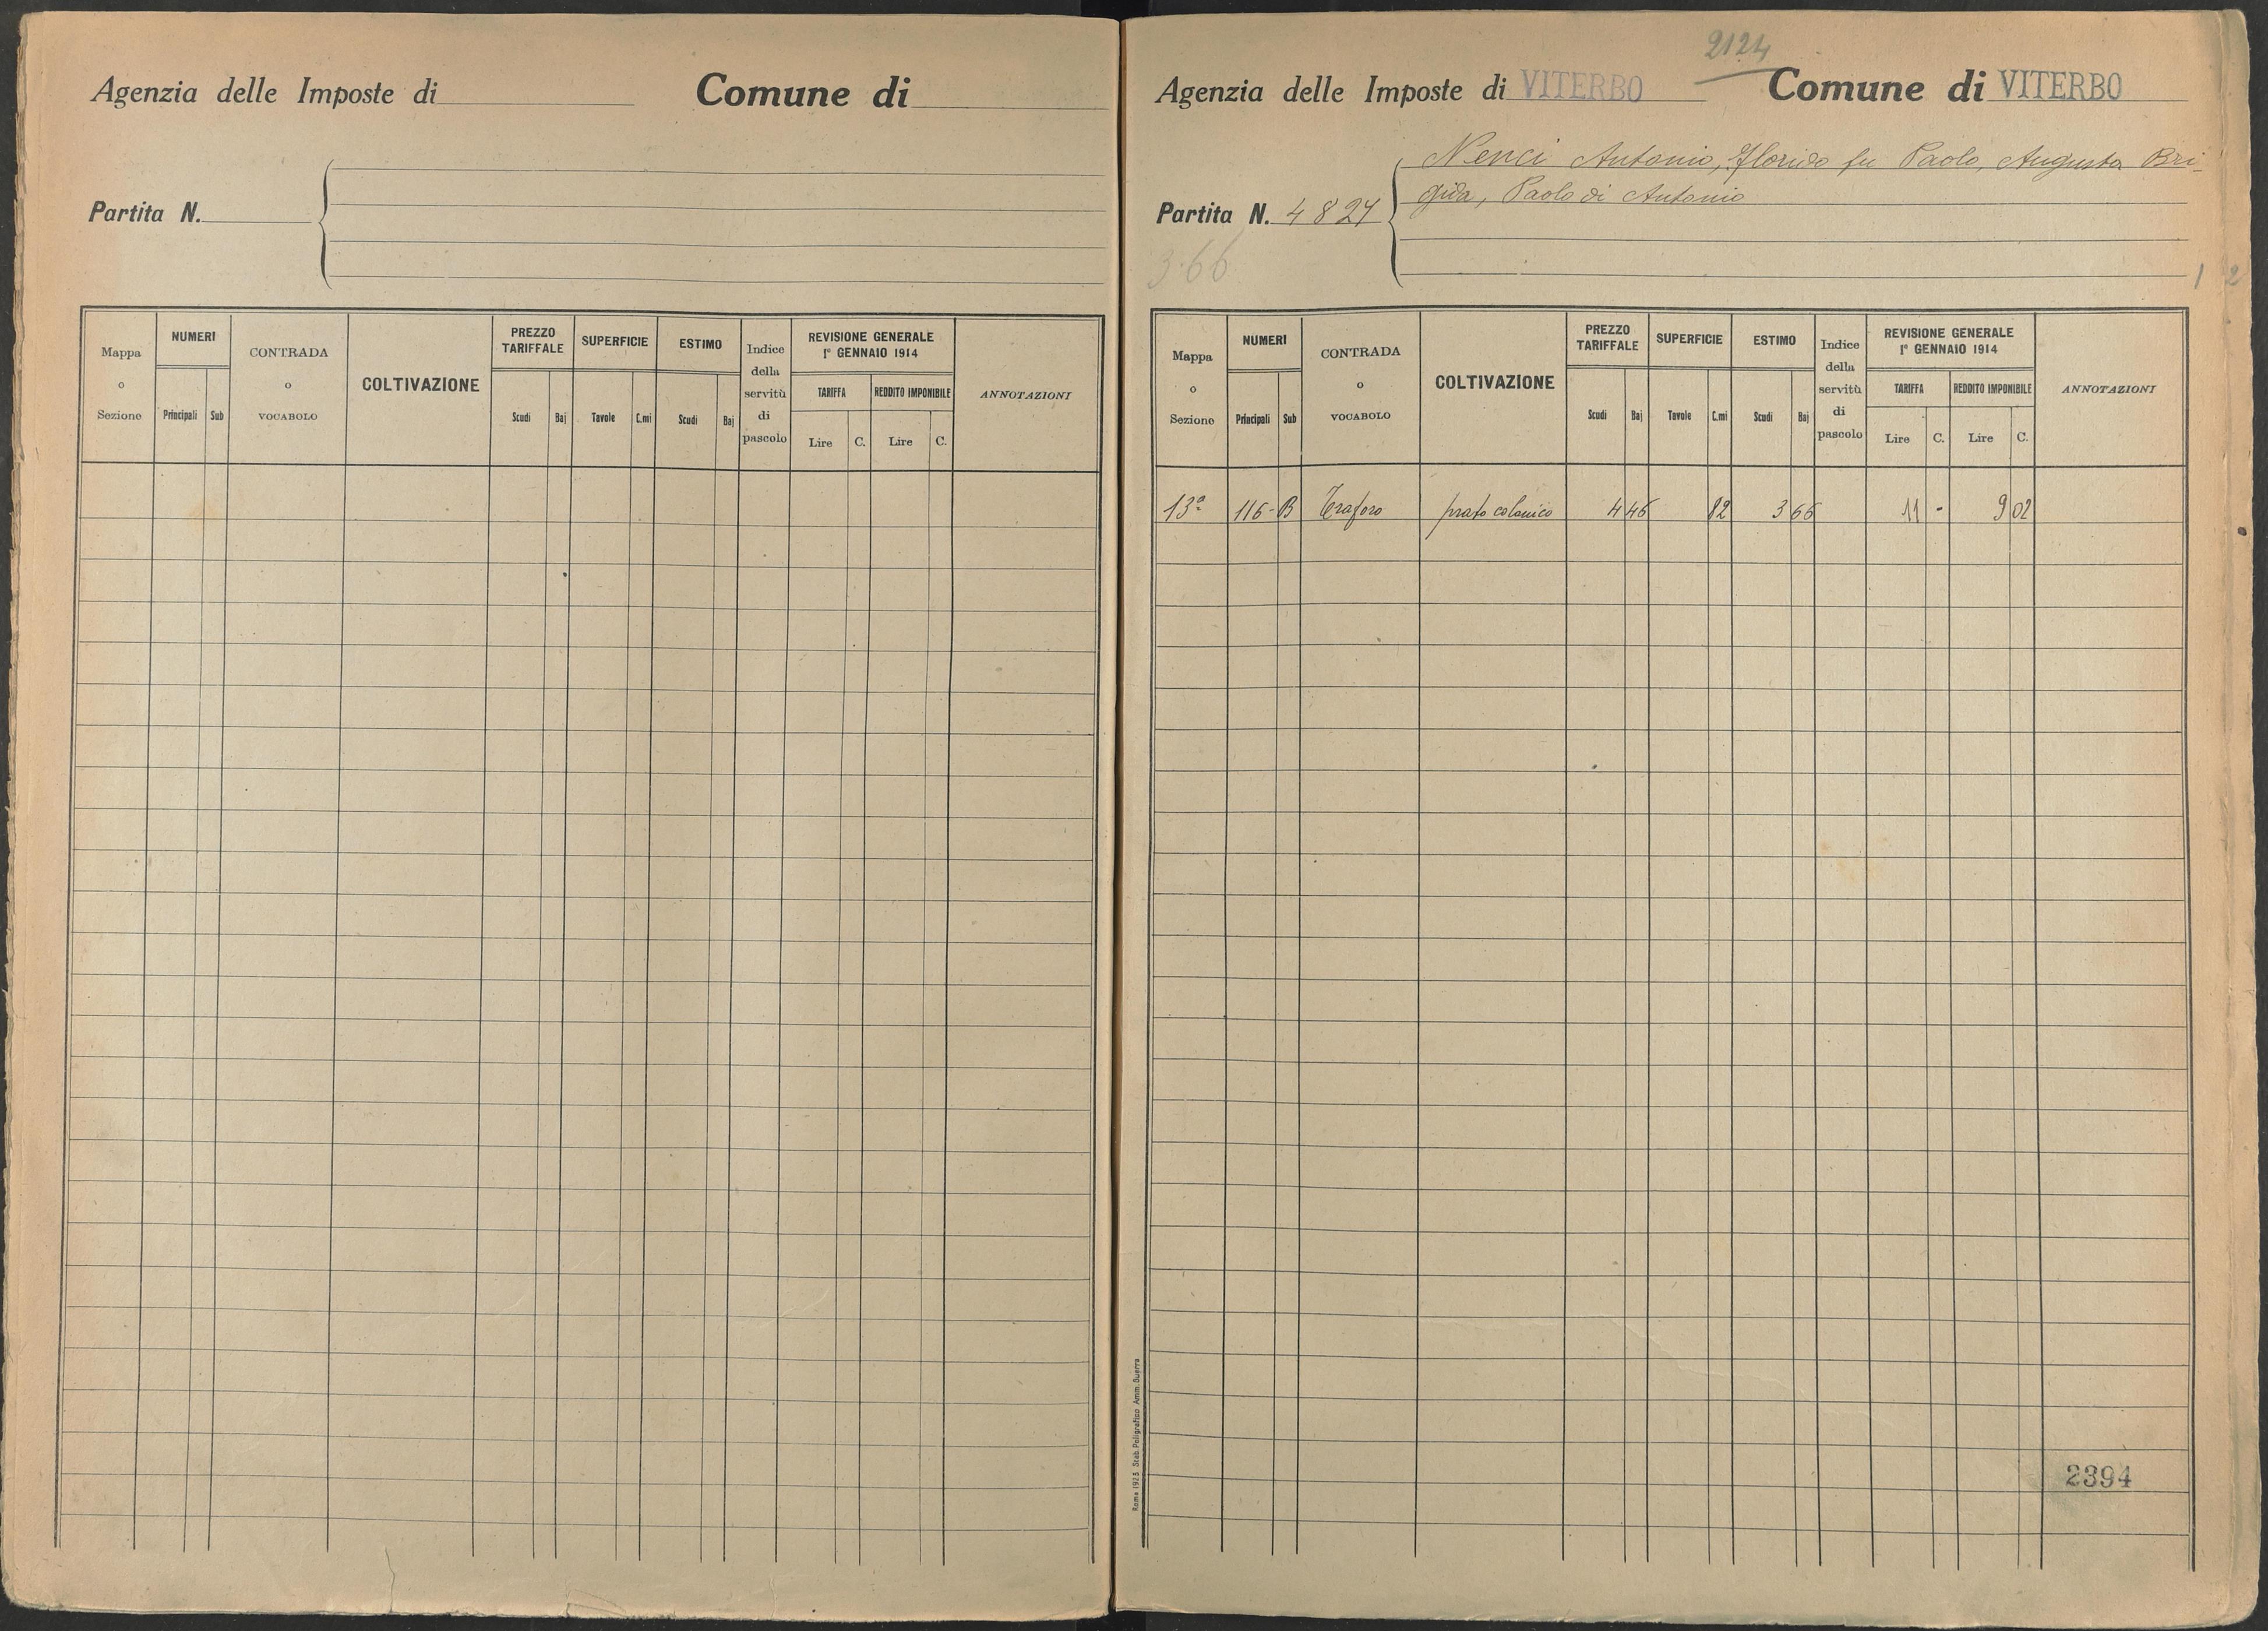 Agenzia delle Imposte di
Comune di
Partita N.
Mappa o Sezione
NUMERI
Principali
Sub
CONTRADA o VOCABOLO
COLTIVAZIONE
PREZZO TARIFFALE
Scudi
Baj
SUPERFICIE
Tavole
C.mi
ESTIMO
Scudi
Baj
Indice della servitù di pascolo
REVISIONE GENERALE
1° GENNAIO 1914
TARIFFA
Lire
C.
REDDITO IMPONIBILE
Lire
C.
ANNOTAZIONI
2124
Agenzia delle Imposte di VITERBO
Comune di VITERBO
Nenci Antonio, Florido fu Paolo, Augusta Bri-
gida, Paolo di Antonio
Partita N. 4827
3.66
1 2
Mappa o Sezione
NUMERI
Principali
Sub
CONTRADA o VOCABOLO
COLTIVAZIONE
PREZZO TARIFFALE
Scudi
Baj
SUPERFICIE
Tavole
C.mi
ESTIMO
Scudi
Baj
Indice della servitù di pascolo
REVISIONE GENERALE
1° GENNAIO 1914
TARIFFA
Lire
C.
REDDITO IMPONIBILE
Lire
C.
ANNOTAZIONI
13ª 116-B Traforo prato colonico 4 46 82 3 66 11 - 9 02
Roma 1923 Stab. Poligrafico Amm. Guerra
2394